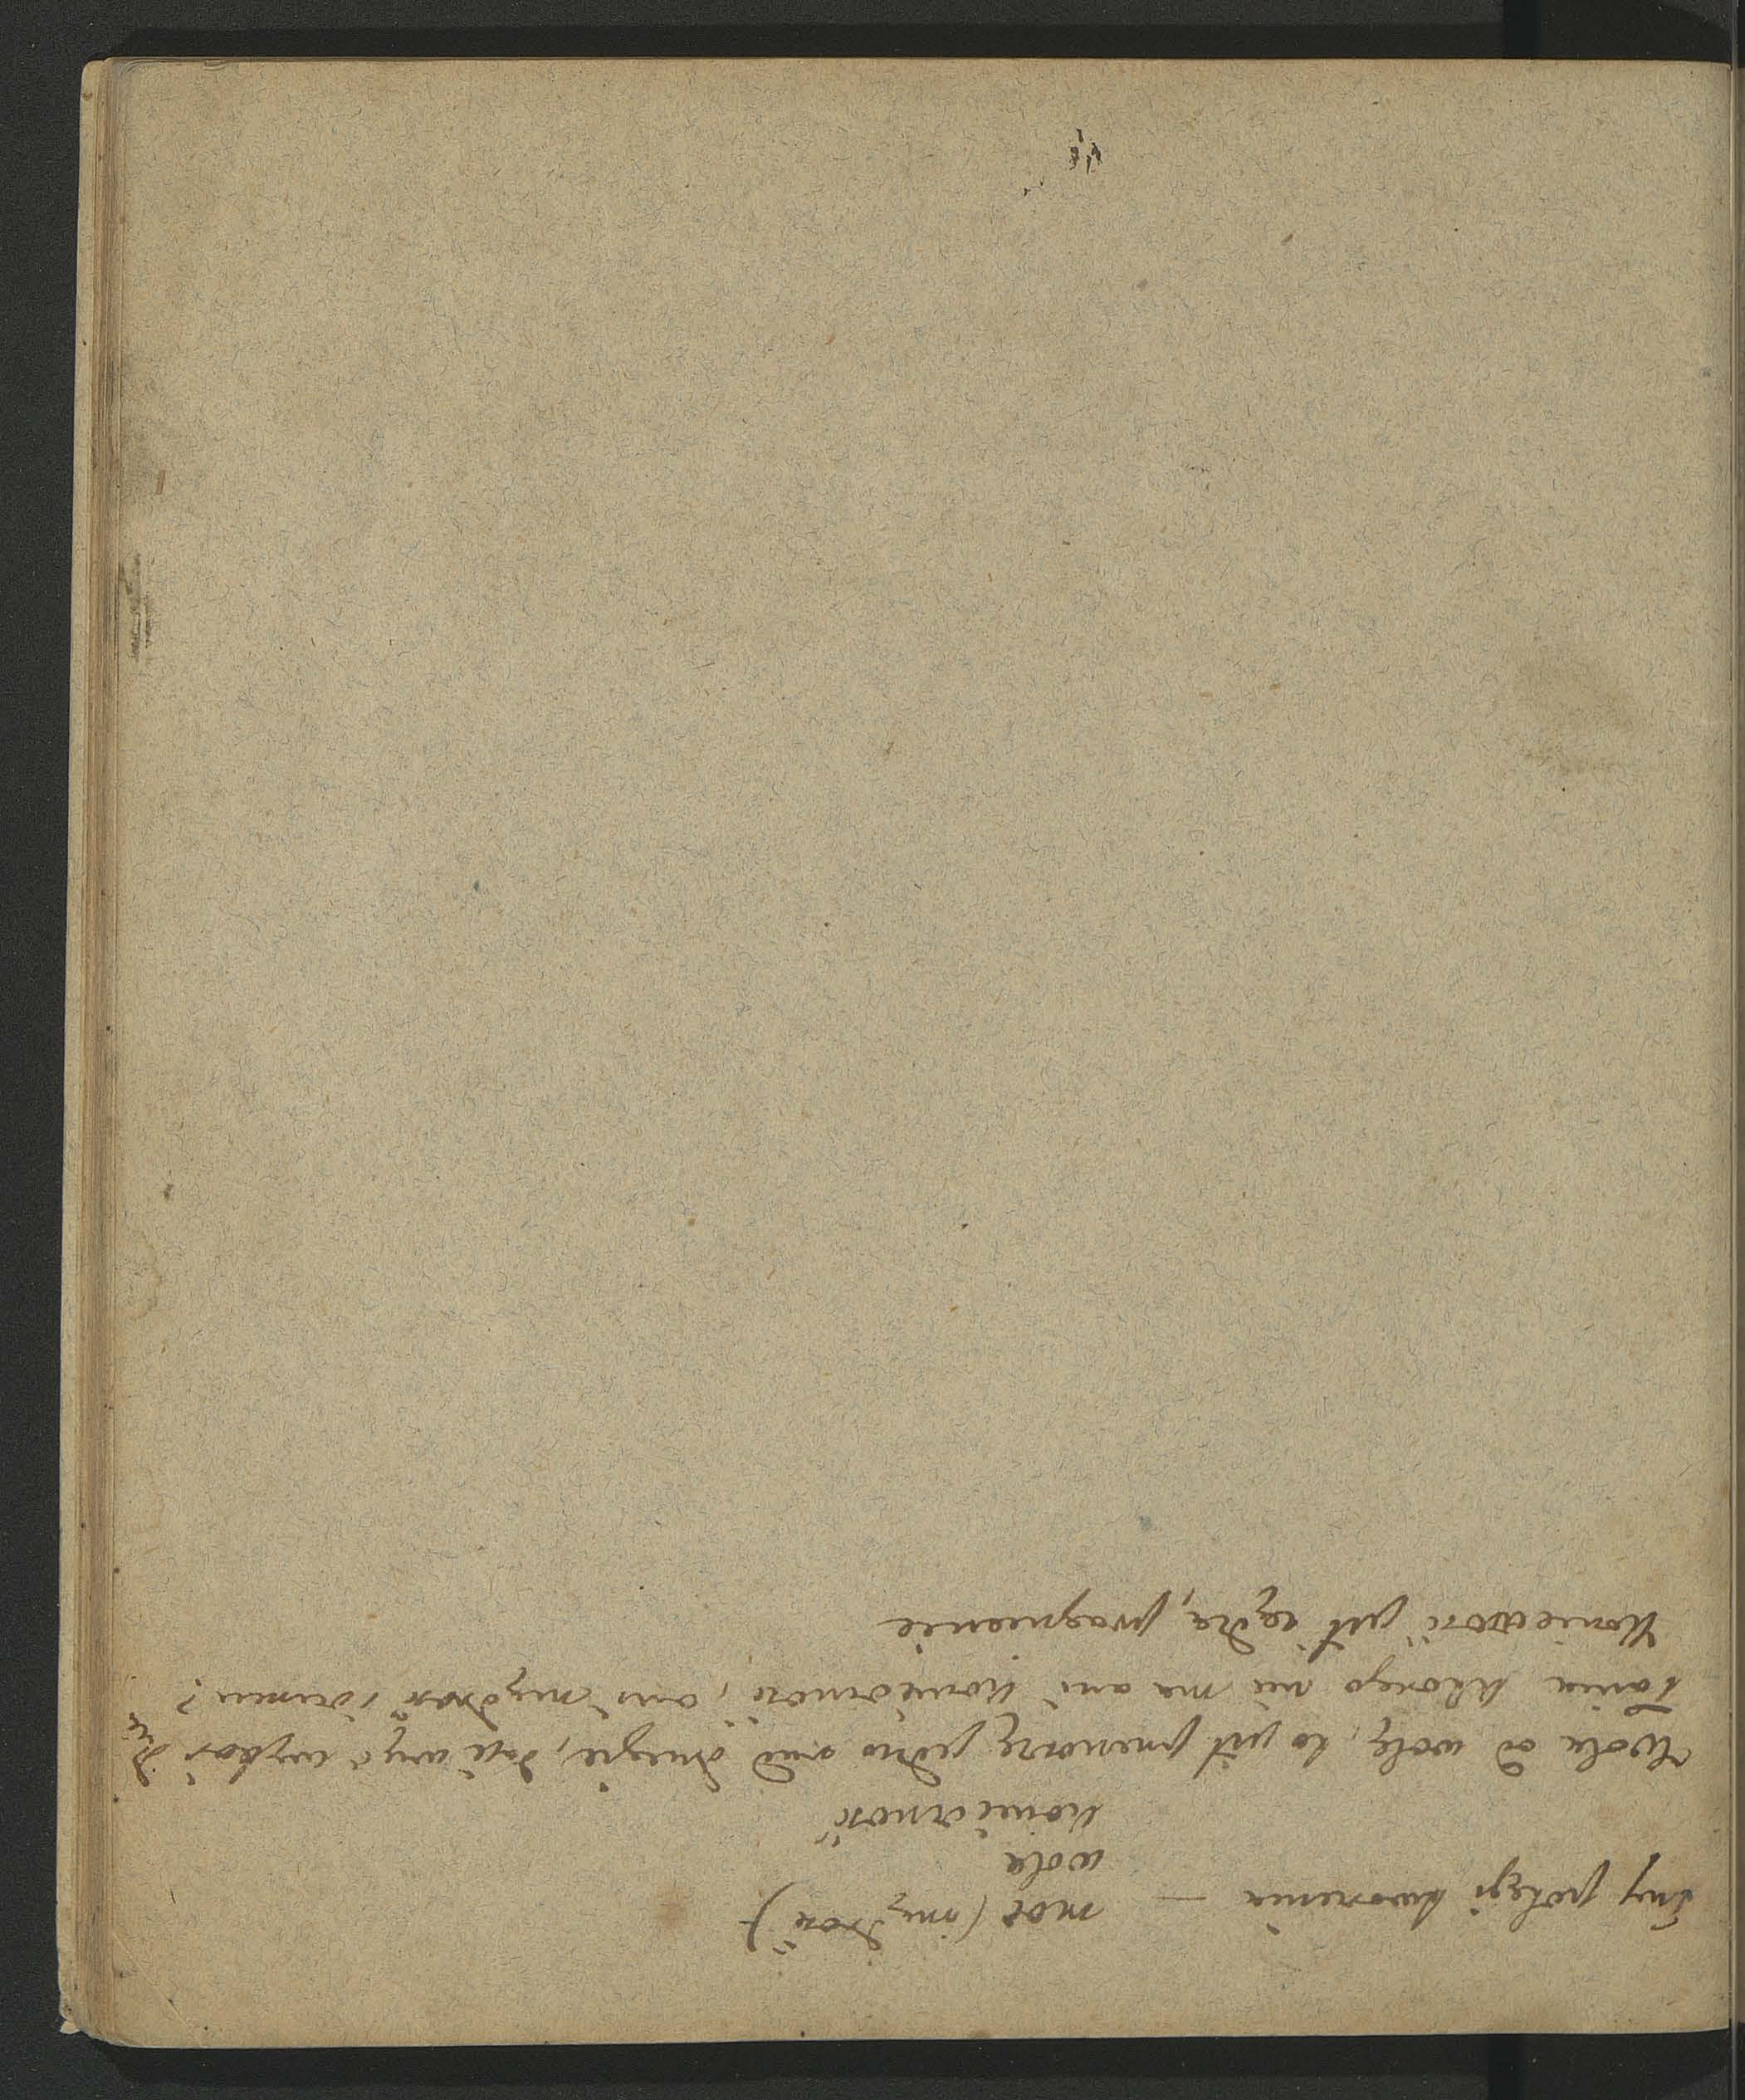 Trzy potęgi tworzenia — moc (mądrość)
wola
konieczność
Wola od wolę, to jest przenoszę jedno nad drugie, daję więc wybór dzie
łania którego nie ma ani konieczność, ani mądrość i rozum?
Konieczność jest żądza, pragnienie